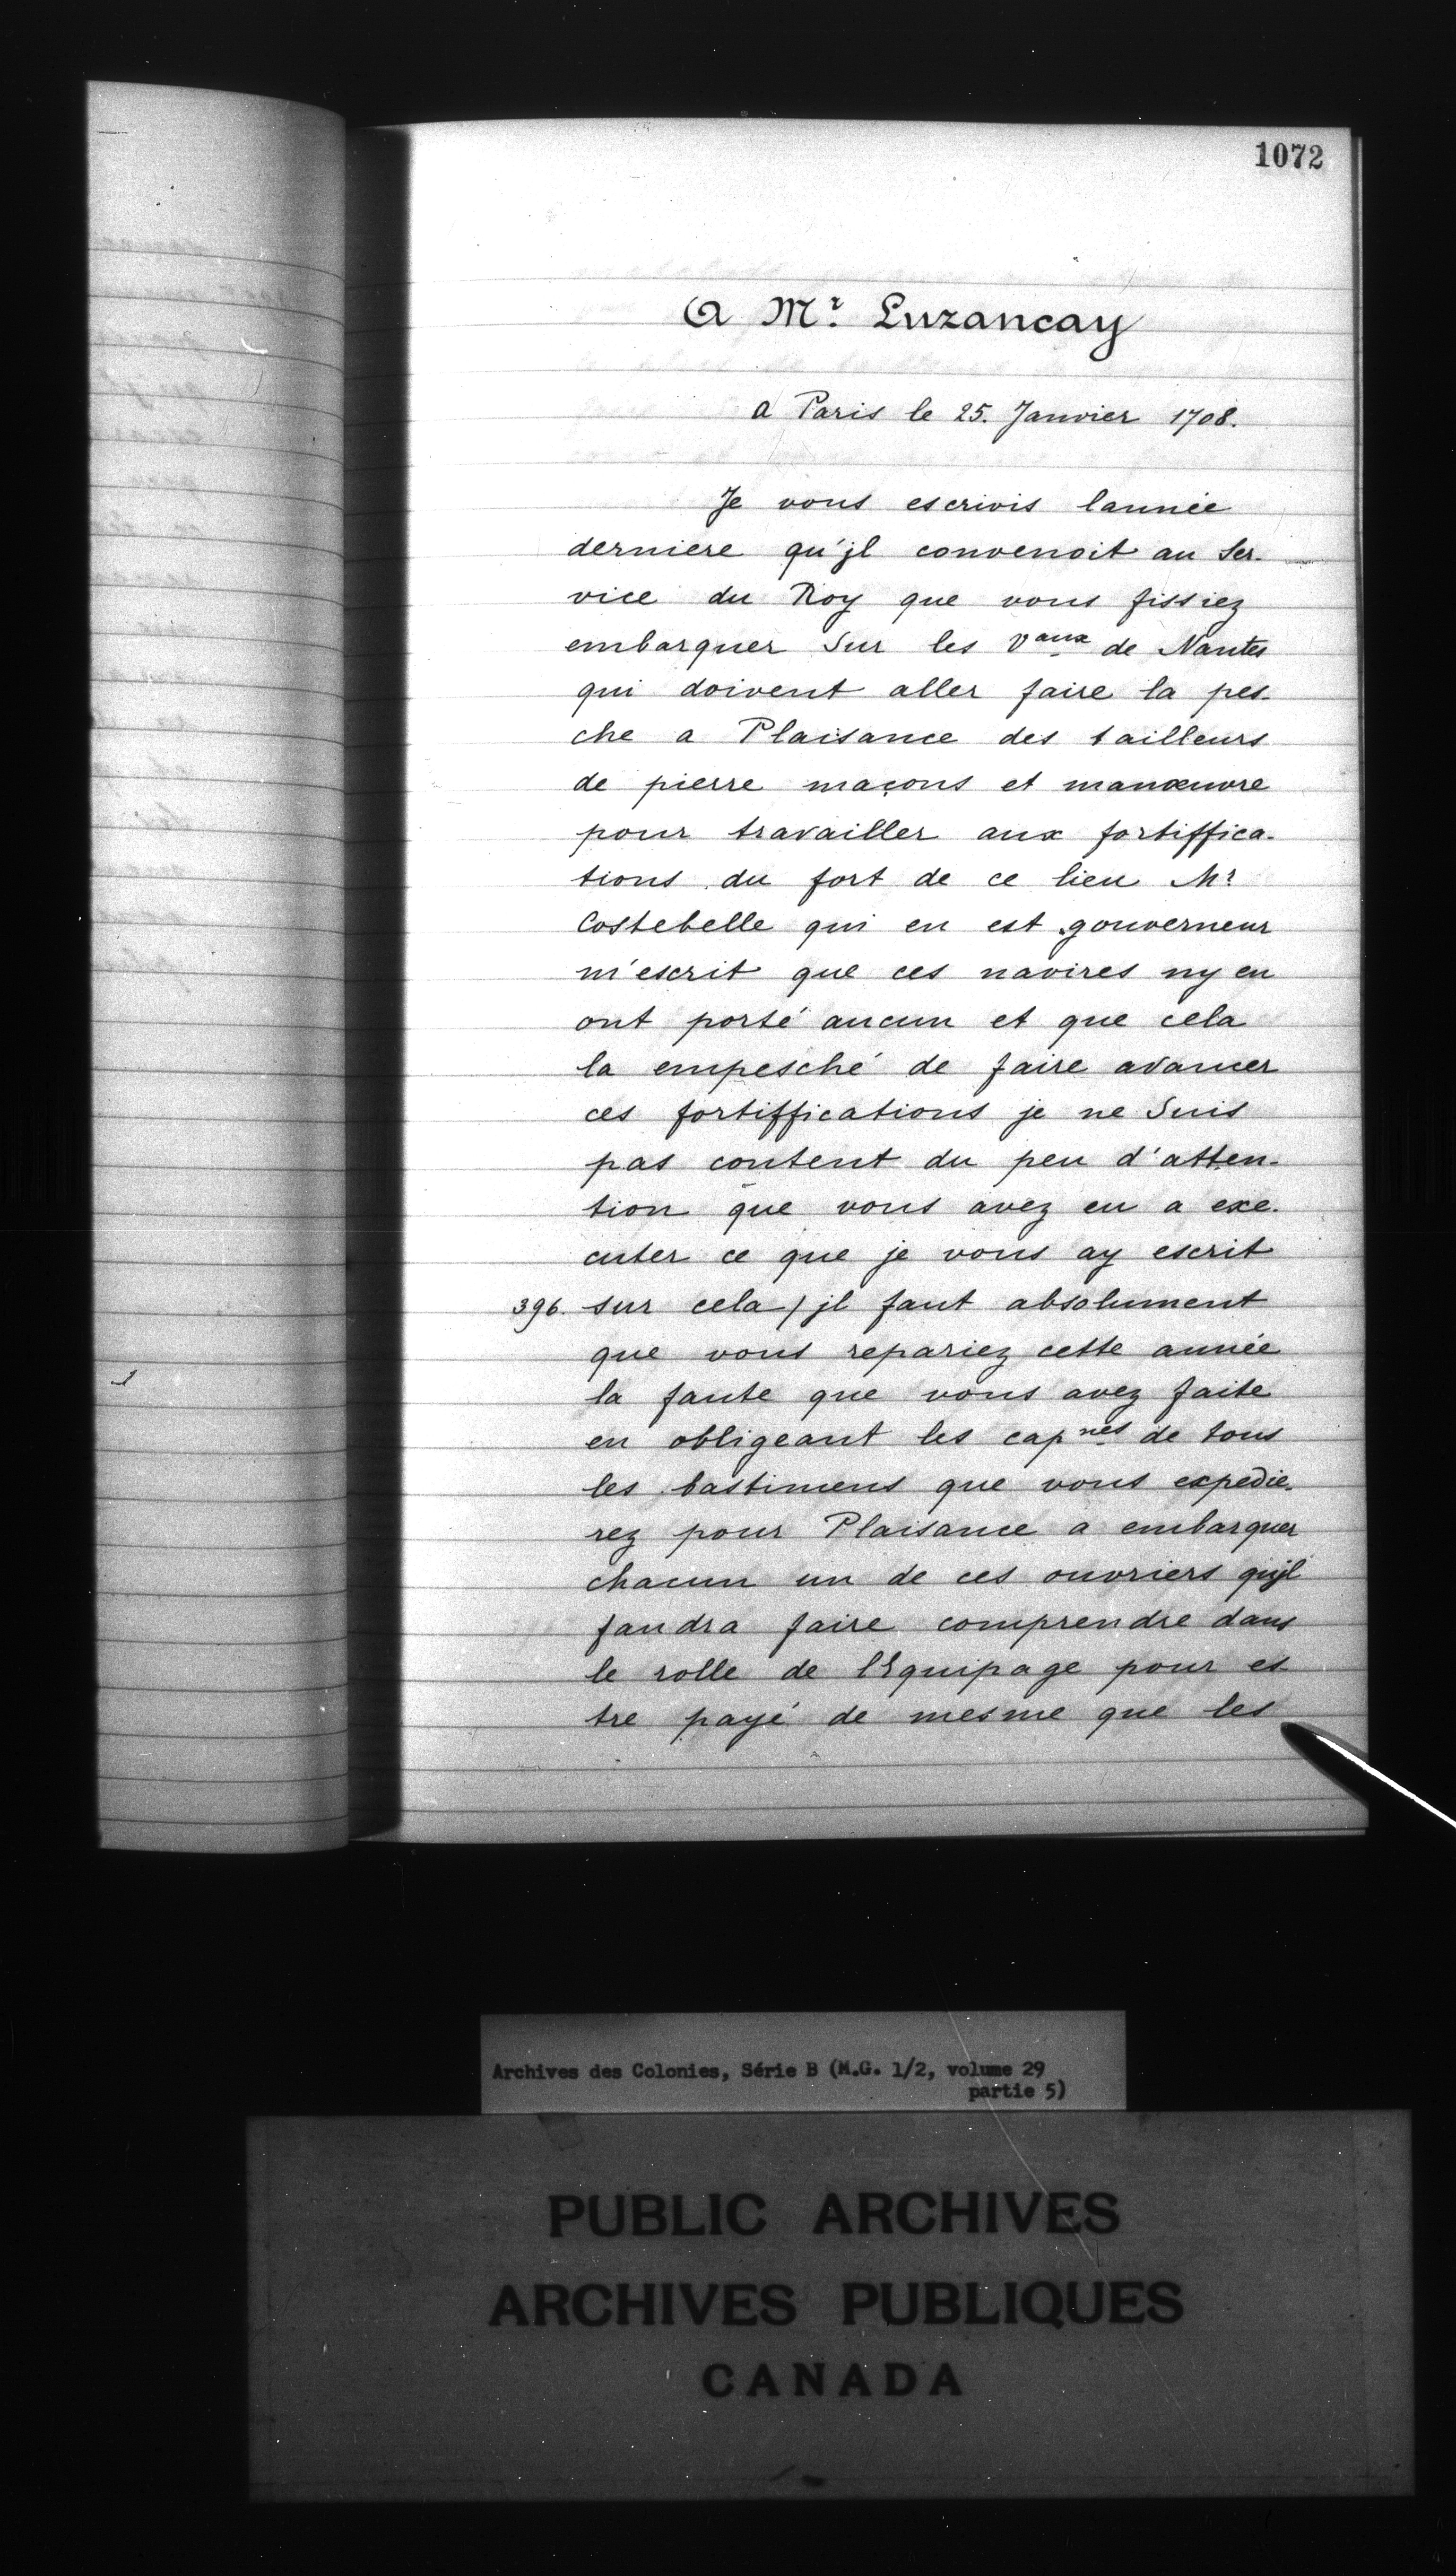 1072
A Mr. Luzancay
a Paris le 25. Janvier 1708.
Je vous escrivis lannée
derniere qu'jl convenoit au Ser-
vice du Roy que vous fissiez
embarquer Sur les vaux de Nantes
qui doivent aller faire la pes-
che a Plaisance des tailleurs
de pierre maçons et manœuvre
pour travailler aux fortiffica-
tions du fort de ce lieu Mr
Costebelle qui en est gouverneur
m'escrit que ces navires ny en
ont porté aucun et que cela
la empesché de faire avancer
ces fortiffications je ne Suis
pas content du peu d'atten-
tion que vous avez eu a exe-
cuter ce que je vous ay escrit
396. sur cela / jl faut absolument
que vous repariez cette année
la faute que vous avez faite
en obligeant les capnes de tous
les bastimens que vous expedie-
rez pour Plaisance a embarquer
chacun un de ces ouvriers qujl
faudra faire comprendre dans
le rolle de lEquipage pour es-
tre payé de mesme que les
Archives des Colonies, Série B (M.G. 1/2, volume 29
partie 5)
PUBLIC ARCHIVES
ARCHIVES PUBLIQUES
CANADA